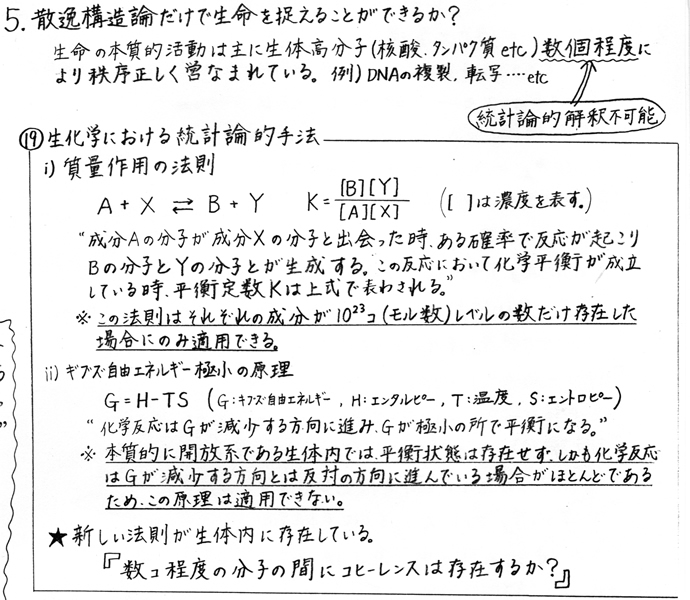 5. 散逸構造論だけで生命を捉えることができるか？
生命の本質的活動は主に生体高分子(核酸、タンパク質etc)数個程度に
より秩序正しく営なまれている。例) DNAの複製、転写‥‥etc
統計論的解釈不可能
⑲生化学における統計論的手法
i) 質量作用の法則
A + X ⇄ B + Y K = [B][Y] / [A][X] ([ ]は濃度を表す。)
"成分Aの分子が成分Xの分子と出会った時、ある確率で反応が起こり
Bの分子とYの分子とが生成する。この反応において化学平衡が成立
している時、平衡定数Kは上式で表わされる。"
※ この法則はそれぞれの成分が10²³コ(モル数)レベルの数だけ存在した
場合にのみ適用できる。
ii) ギブズ自由エネルギー極小の原理
G = H - TS (G:ギブズ自由エネルギー, H:エンタルピー, T:温度, S:エントロピー)
"化学反応はGが減少する方向に進み、Gが極小の所で平衡になる。"
※ 本質的に開放系である生体内では、平衡状態は存在せず、しかも化学反応
はGが減少する方向とは反対の方向に進んでいる場合がほとんどである
ため、この原理は適用できない。
★ 新しい法則が生体内に存在している。
『数コ程度の分子の間にコヒーレンスは存在するか？』